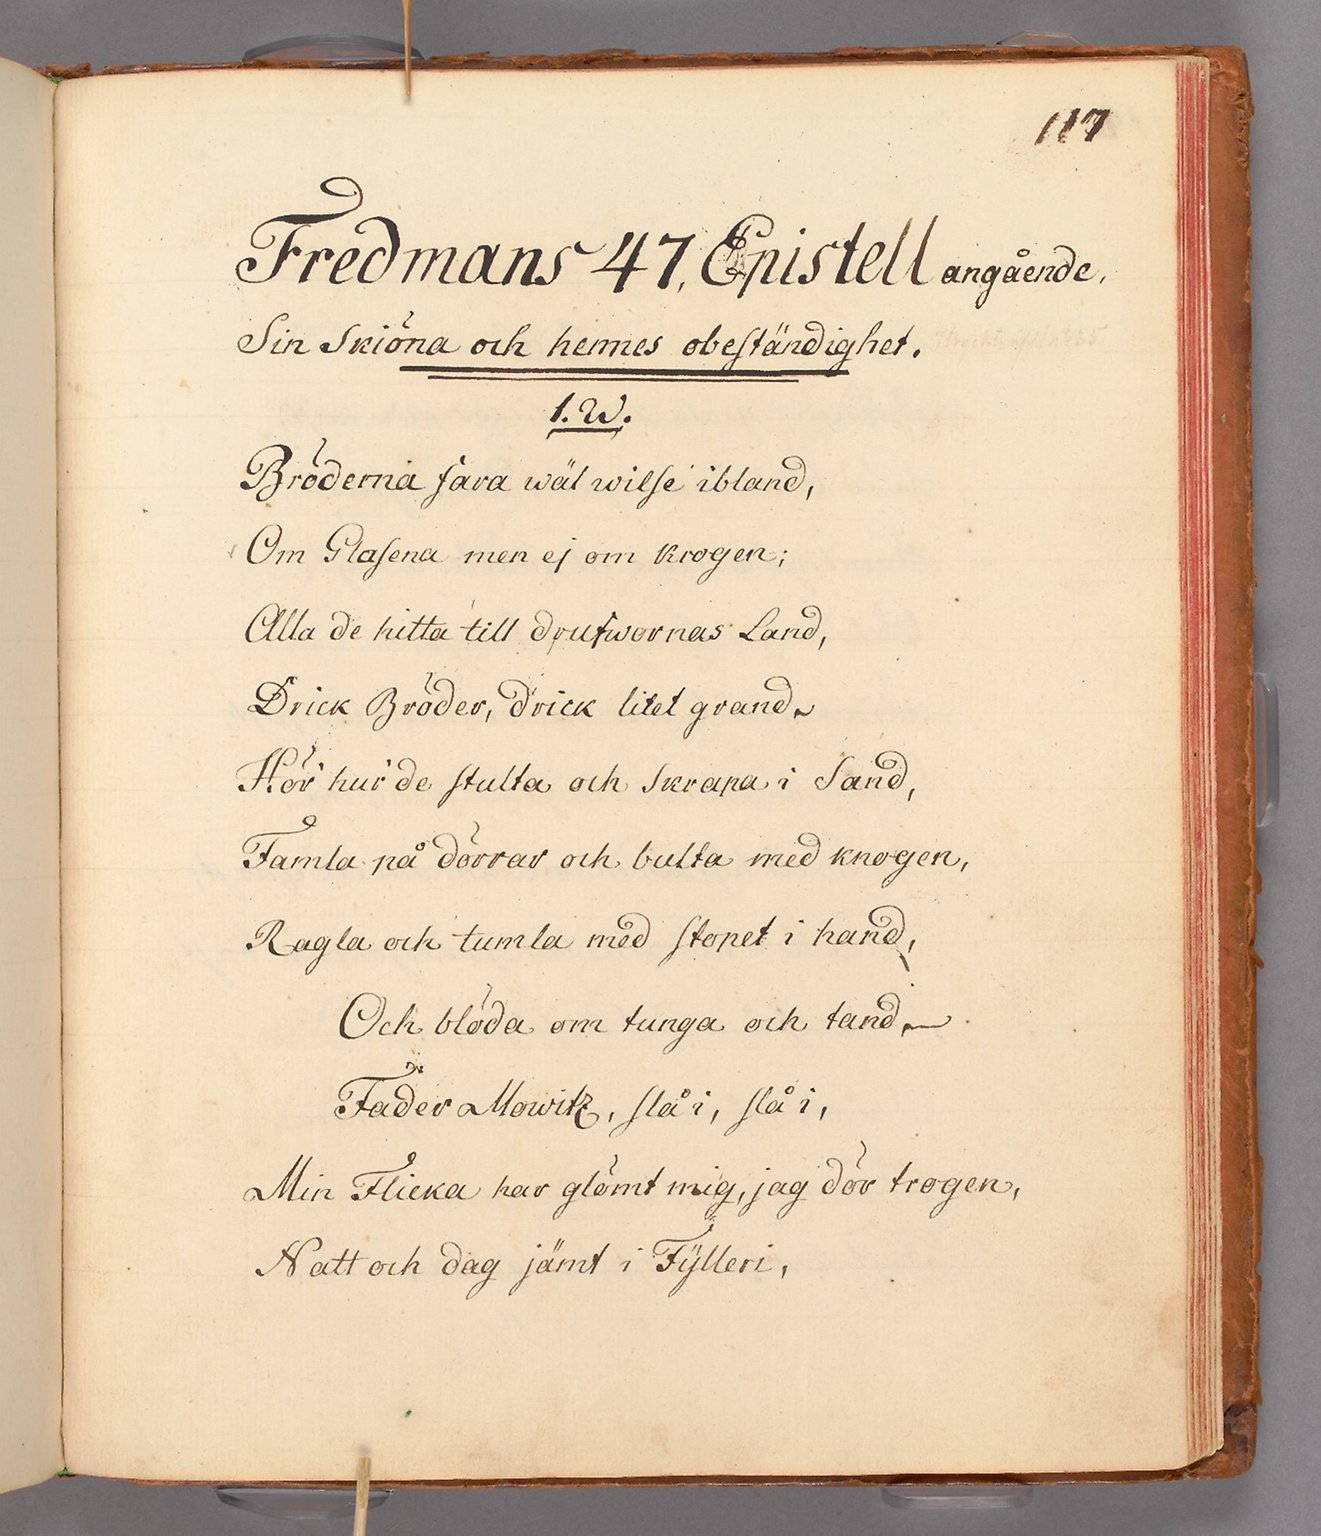 117
Fredmans 47. Epistell angående,
Sin Skiöna och hennes obeständighet.
1. W.
Bröderna fara wäl wilse ibland,
Om Glasena men ej om Krogen;
Alla de hitta till drufwornas Land,
Drick Bröder, drick litet grand.
Hör hur de stulta och skrapa i Sand,
Famla på dörrar och bulta med knogen,
Ragla och tumla med stopet i hand,
Och blöda om tunga och tand,
Fader Mowitz, slå i, slå i,
Min Flicka har glömt mig, jag dör trogen,
Natt och dag jämt i Fylleri,